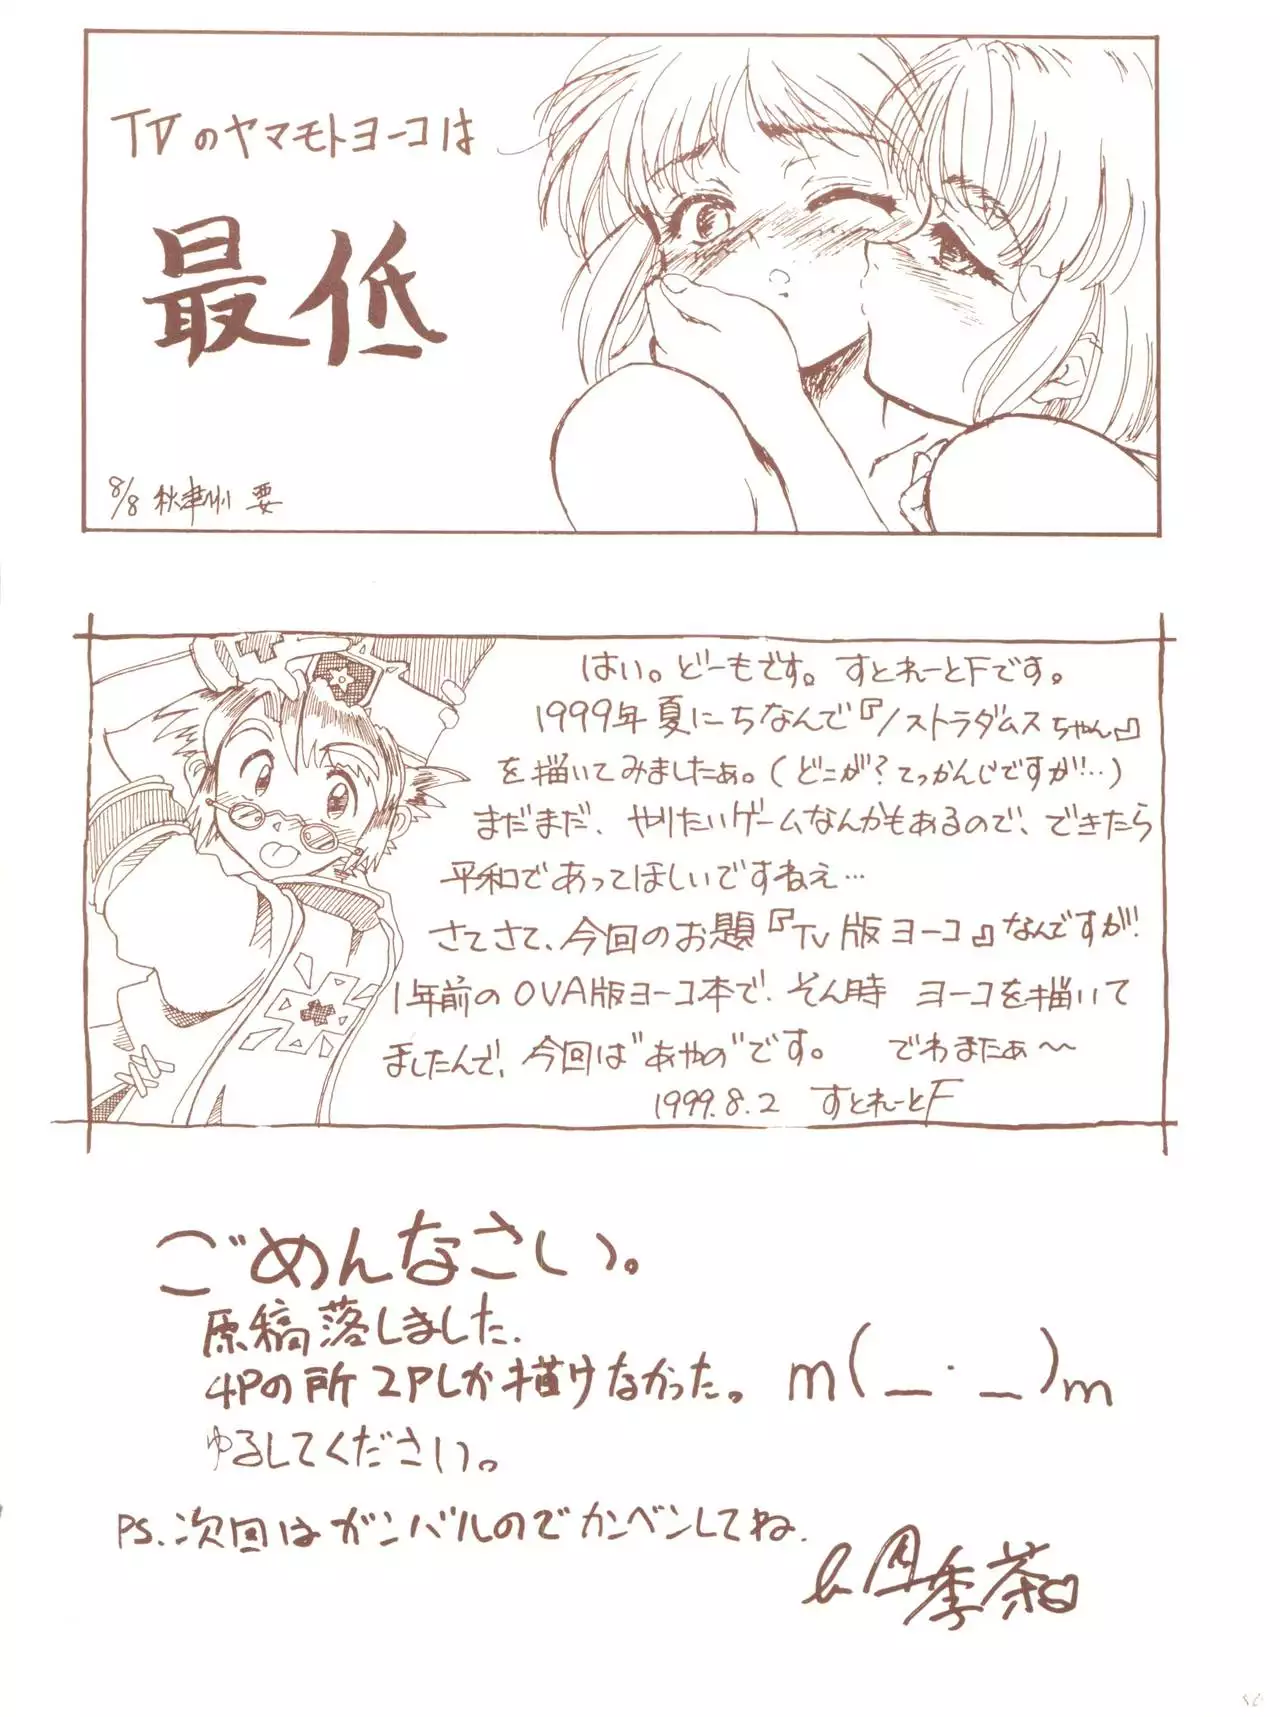 TVのヤマモトヨーコは
最低
8/8 秋津洲 要
はい。どーもです。すとれーとFです。
1999年夏にちなんで『ノストラダムスちゃん』
を描いてみましたぁ。(どこが?てっかんじですが…)
まだまだ、やりたいゲームなんかもあるので、できたら
平和であってほしいですねえ…
さてさて、今回のお題『TV版ヨーコ』なんですが!
1年前のOVA版ヨーコ本で、そん時 ヨーコを描いて
ましたんで、今回は"あやの"です。 でわまたぁ〜
1999.8.2 すとれーとF
ごめんなさい。
原稿落しました.
4Pの所2Pしか描けなかった。 m(_._)m
ゆるしてください。
PS.次回はガンバルのでカンベンしてね.
季茶